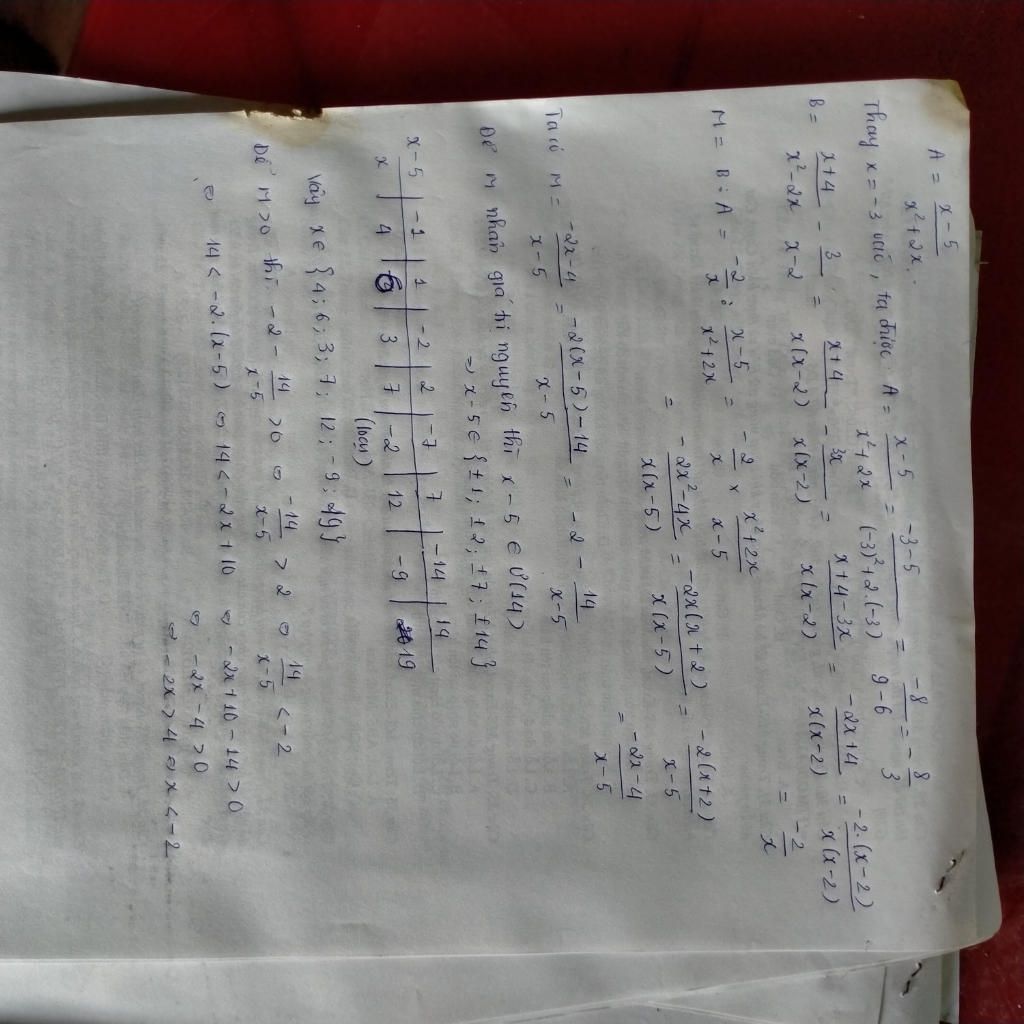 A = \frac{x-5}{x^2+2x}.
Thay x = -3 vào, ta được: A = \frac{x-5}{x^2+2x} = \frac{-3-5}{(-3)^2+2.(-3)} = \frac{-8}{9-6} = -\frac{8}{3}
B = \frac{x+4}{x^2-2x} - \frac{3}{x-2} = \frac{x+4}{x(x-2)} - \frac{3x}{x(x-2)} = \frac{x+4-3x}{x(x-2)} = \frac{-2x+4}{x(x-2)} = \frac{-2.(x-2)}{x(x-2)}
= \frac{-2}{x}
M = B : A = \frac{-2}{x} : \frac{x-5}{x^2+2x} = -\frac{2}{x} × \frac{x^2+2x}{x-5}
= \frac{-2x^2-4x}{x(x-5)} = \frac{-2x(x+2)}{x(x-5)} = \frac{-2(x+2)}{x-5}
= \frac{-2x-4}{x-5}
Ta có M = \frac{-2x-4}{x-5} = \frac{-2(x-5)-14}{x-5} = -2 - \frac{14}{x-5}
Để M nhận giá trị nguyên thì x-5 ∈ Ư(14)
⇒ x-5 ∈ {±1; ±2; ±7; ±14}
x-5 | -1 | 1 | -2 | 2 | -7 | 7 | -14 | 14
x | 4 | 6 | 3 | 7 | -2 | 12 | -9 | 19
(loại)
Vậy x ∈ {4; 6; 3; 7; 12; -9; 19}
Để M>0 thì -2 - \frac{14}{x-5} > 0 ⇔ \frac{-14}{x-5} > 2 ⇔ \frac{14}{x-5} < -2
⇔ 14 < -2.(x-5) ⇔ 14 < -2x+10 ⇔ -2x+10-14>0
⇔ -2x-4>0
⇔ -2x>4 ⇔ x<-2